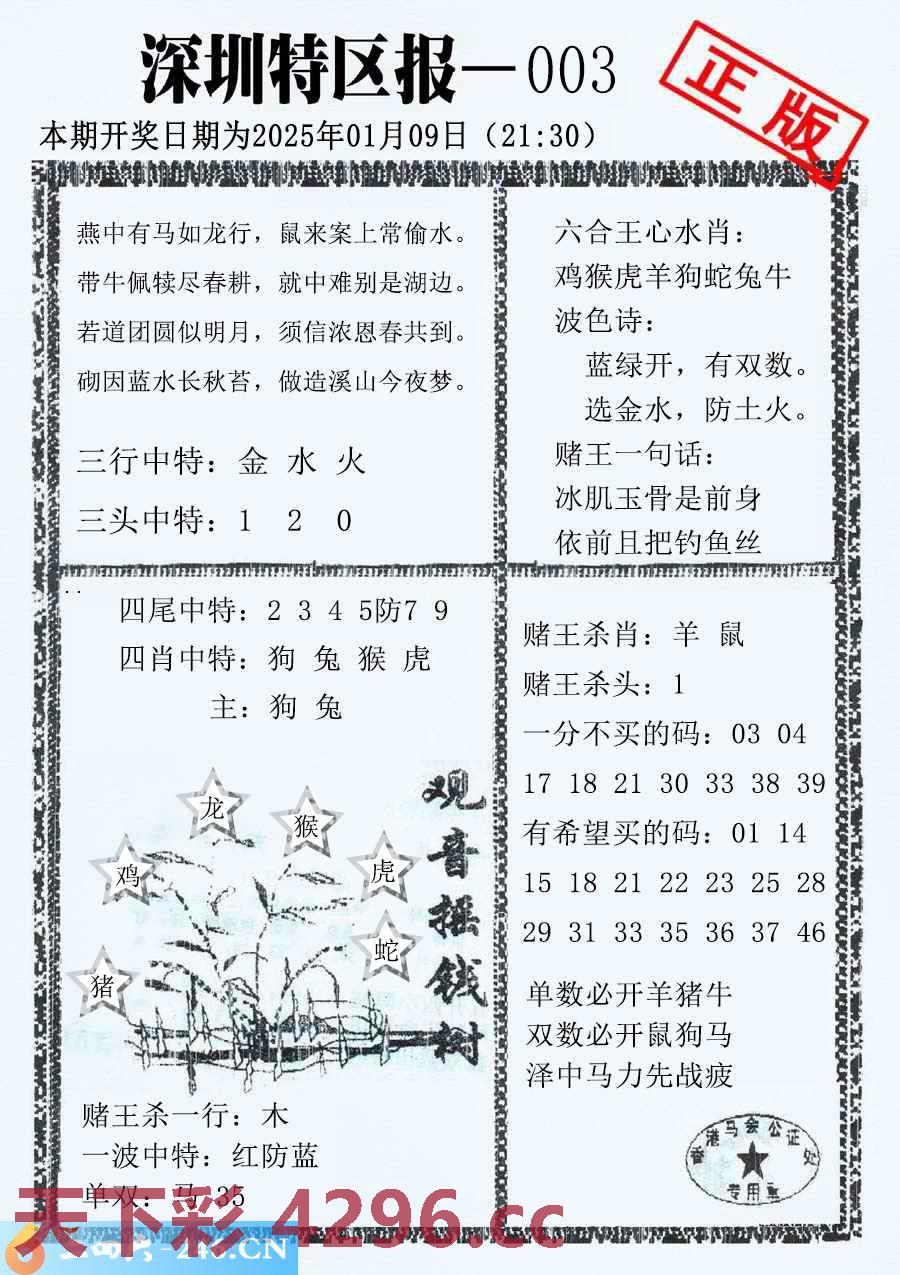 深圳特区报－003
正版
本期开奖日期为2025年01月09日（21:30）
燕中有马如龙行，鼠来案上常偷水。
带牛佩犊尽春耕，就中难别是湖边。
若道团圆似明月，须信浓恩春共到。
砌因蓝水长秋苔，做造溪山今夜梦。
三行中特：金 水 火
三头中特：1 2 0
六合王心水肖：
鸡猴虎羊狗蛇兔牛
波色诗：
蓝绿开，有双数。
选金水，防土火。
赌王一句话：
冰肌玉骨是前身
依前且把钓鱼丝
四尾中特：2 3 4 5防7 9
四肖中特：狗 兔 猴 虎
主：狗 兔
龙
猴
鸡
虎
蛇
猪
观音摇钱树
赌王杀一行：木
一波中特：红防蓝
单双：马 35
赌王杀肖：羊 鼠
赌王杀头：1
一分不买的码：03 04
17 18 21 30 33 38 39
有希望买的码：01 14
15 18 21 22 23 25 28
29 31 33 35 36 37 46
单数必开羊猪牛
双数必开鼠狗马
泽中马力先战疲
香港马会公证处
专用章
天下彩 4296.cc